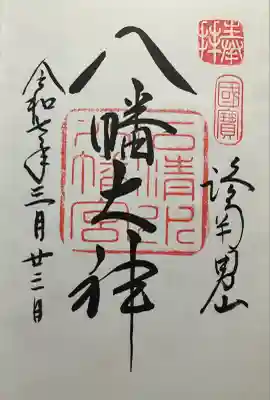 奉拝
國寶
洛南男山
八幡大神
石清水八幡宮
令和七年三月廿三日